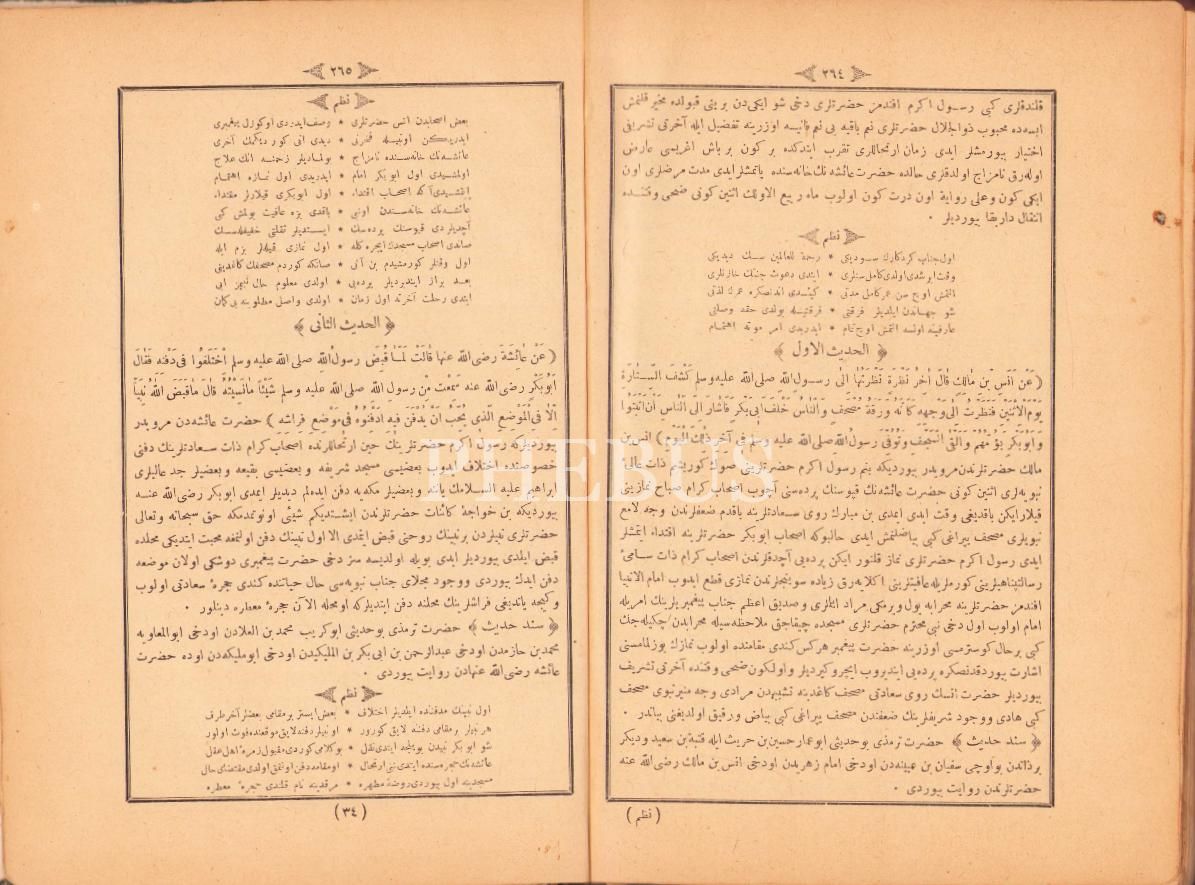 ٢٦٤
قلندقلری کبی رسول اکرم افندمز حضرتلری دخی شو ایکی‌دن برینی قبولده مخیر قلنمش
ایسه‌ده محبوب ذوالجلال حضرتلری نعیم باقیه یی نعیم فانیه اوزرینه تفضیل ایله آخرتی تشریفی
اختیار بیورمشلر ایدی زمان ارتحاللری تقرب ایتدکده بر کون بر باش اغریسی عارض
اوله‌رق نامزاج اولدقلری حالده حضرت عائشه‌نك خانه‌سنده یاتمشلر ایدی مدت مرضلری اون
ایکی کون و علی روایة اون درت کون اولوب ماه ربیع الاولك اثنین کونی ضحی وقتنده
انتقال دار بقا بیوردیلر .
نظم
اول جناب کردکارك سودیکی * رحمة للعالمین سك دیدیکی
وقت ایرشدی اولدی کامل سنلری * ایتدی دعوت جنتك خازنلری
التمش اوچ سن عمر کامل مدتی * کیتدی اندنصکره عمرك لذتی
شو جهاندن ایلدیلر فرقتی * فرقتیله بولدی حقد وصلتی
عارفینه اولسه التمش اوچ تمام * ایدریدی امر موته اهتمام
﴿ الحدیث الاول ﴾
(عَنْ اَنَسِ بْنِ مَالِكٍ قَالَ اٰخِرُ نَظْرَةٍ نَظَرْتُهَا اِلٰی رَسُولِ اللّٰهِ صلی الله علیه وسلم كَشَفَ السِّتَارَةَ
يَوْمَ الْاِثْنَيْنِ فَنَظَرْتُ اِلٰی وَجْهِهِ كَاَنَّهُ وَرَقَةُ مُصْحَفٍ وَالنَّاسُ خَلْفَ اَبِی بَكْرٍ فَاَشَارَ اِلَی النَّاسِ اَنِ اثْبُتُوا
وَاَبُوبَكْرٍ يَؤُمُّهُمْ وَاَلْقَی السَّجْفَ وَتُوُفِّیَ رسول الله صلی الله علیه وسلم فی آخِرِ ذٰلِكَ الْیَوْمِ) انس بن
مالك حضرتلرندن مرویدر بیوردیکه بنم رسول اکرم حضرتلرینی صوك کوریشم ذات عالئ
نبویه‌لری اثنین کونی حضرت عائشه‌نك قپوسنك پرده‌سنی آچوب اصحاب کرام صباح نمازینی
قیلارایکن باقدیغی وقت ایدی ایمدی بن مبارك روی سعادتلرینه باقدم ضعفلرندن وجه لامع
نبویلری مصحف یپراغی کبی بیاضلنمش ایدی حالبوکه اصحاب ابوبکر حضرتلرینه اقتداء ایتمشلر
ایدی رسول اکرم حضرتلری نماز قلنور ایکن پرده‌یی آچدقلرندن اصحاب کرام ذات سامئ
رسالتپناهیلرینی کورملریله عافیتلرینی اکلایه‌رق زیاده سوینجلرندن نمازی قطع ایدوب امام الانبیا
افندمز حضرتلرینه محرابه یول ویرمکی مراد ایتلری و صدیق اعظم جناب پیغمبریلرینك امریله
امام اولوب اول دخی نبی محترم حضرتلری مسجده چیقاجق ملاحظه‌سیله محرابدن چکیله‌جك
کبی بر حال کوسترمسی اوزرینه حضرت پیغمبر هرکس کندی مقامنده اولوب نمازك بوزلمامسنی
اشارت بیوردقدنصکره پرده‌یی ایندیروب ایچرو کیردیلر و اولکون ضحی وقتنده آخرتی تشریف
بیوردیلر حضرت انسك روی سعادتی مصحف کاغدینه تشبیهدن مرادی وجه منیر نبوی مصحف
کبی هادی و وجود شریفلرینك ضعفندن مصحف یپراغی کبی بیاض و رقیق اولدیغنی بیاندر .
﴿ سند حدیث ﴾ حضرت ترمذی بوحدیثی ابوعمار حسین بن حریث ایله قتیبة بن سعید ودیکر
بر ذاتدن بواوچی سفیان بن عیینه‌دن اودخی امام زهریدن اودخی انس بن مالك رضی الله عنه
حضرتلرندن روایت بیوردی .
( نظم )
٢٦٥
نظم
بعض اصحابدن انس حضرتلری * وصف ایدردی اوکوزل پیغمبری
عائشه‌نك خانه‌سنده نامزاج * بولمادیلر زحمته انك علاج
اولمشیدی اول ابوبکر امام * ایدریدی اول نمازه اهتمام
ایتمشیدی آکه اصحاب اقتداء * اول ابوبکری قیلارلر مقتداء
عائشه‌نك خانه‌سندن اونی * باقدی بزه عافیت بولمش کبی
آچدیلردی قپوسنك پرده‌سك * ایستدیلر ثقلتی خفیفله‌سك
صاندی اصحاب مسجدك ایچره کله * اول نمازی قیله‌لر بزم ایله
اول وقتلر کورمشیدم بن آنی * صانکه کوردم مصحفك کاغدینی
بعد براز ایندیردیلر پرده‌یی * اولدی معلوم حال
ایتدی رحلت آخرته اول زمان * اولدی واصل مطلوبنه بی کمان
﴿ الحدیث الثانی ﴾
( عَنْ عَائِشَةَ رضی الله عنها قَالَتْ لَمَّا قُبِضَ رسول الله صلی الله علیه وسلم اخْتَلَفُوا فِی دَفْنِهِ فَقَالَ
اَبُوبَكْرٍ رضی الله عنه سَمِعْتُ مِنْ رسول الله صلی الله علیه وسلم شَيْئًا مَانَسِيتُهُ قَالَ مَاقَبَضَ اللّٰهُ نَبِيًّا
اِلَّا فِی الْمَوْضِعِ الَّذِی يُحِبُّ اَنْ يُدْفَنَ فِيهِ اِدْفِنُوهُ فِی مَوْضِعِ فِرَاشِهِ ) حضرت عائشه‌دن مرویدر
بیوردیلرکه رسول اکرم حضرتلرینك حین ارتحاللرنده اصحاب کرام ذات سعادتلرینك دفنی
خصوصنده اختلاف ایدوب بعضیسی مسجد شریفه و بعضیسی بقیعه و بعضیلر جد عالیلری
ابراهیم علیه السلامك یاننه و بعضیلر مکه‌یه دفن ایده‌لم دیدیلر ایمدی ابوبکر رضی الله عنه
بیوردیکه بن خواجهٔ کائنات حضرتلرندن ایشتدیکم شیئی اونوتمدمکه حق سبحانه وتعالی
حضرتلری نبیلردن برنبینك روحنی قبض ایتمدی الا اول نبینك دفن اولنمغه محبت ایتدیکی محلده
قبض ایلدی بیوردیلر ایدی بویله اولدیسه سز دخی حضرت پیغمبری دوشکی اولان موضعه
دفن ایدك بیوردی ووجود مجلای جناب نبویه‌سی حال حیاتنده کندی حجرهٔ سعادتی اولوب
وکیجه یاتدیغی فراشلرینك محلنه دفن ایتدیلرکه اومحله الآن حجرهٔ معطره دینلور .
﴿ سند حدیث ﴾ حضرت ترمذی بوحدیثی ابوکریب محمد بن العلادن اودخی ابوالمعاویه
محمد بن حازمدن اودخی عبدالرحمن بن ابی بکر بن الملیکیدن اودخی ابوملیکه‌دن اوده حضرت
عائشه رضی الله عنهادن روایت بیوردی .
نظم
اول نبینك مدفننده ایلدیلر اختلاف * بعض ایستر بر مقامی بعضلر آخر طرف
هر نبیلر بر مقامی دفننه لایق کورور * اونبیلر دفنه لایق موقعنده فوت اولور
شو ابوبکر نبیدن بویله ایتدی نقل * بوکلامی کوردی مقبول زمرهٔ اهل عقل
عائشه‌نك حجره‌سنده ایتدی نبی ارتحال * اومقامه دفن اولنمق اولدی مقتضای حال
مسجدینه اول بیوردی روضهٔ مطهره * مرقدینه نام قلندی حجرهٔ معطره
( ٣٤ )
PHEBUS